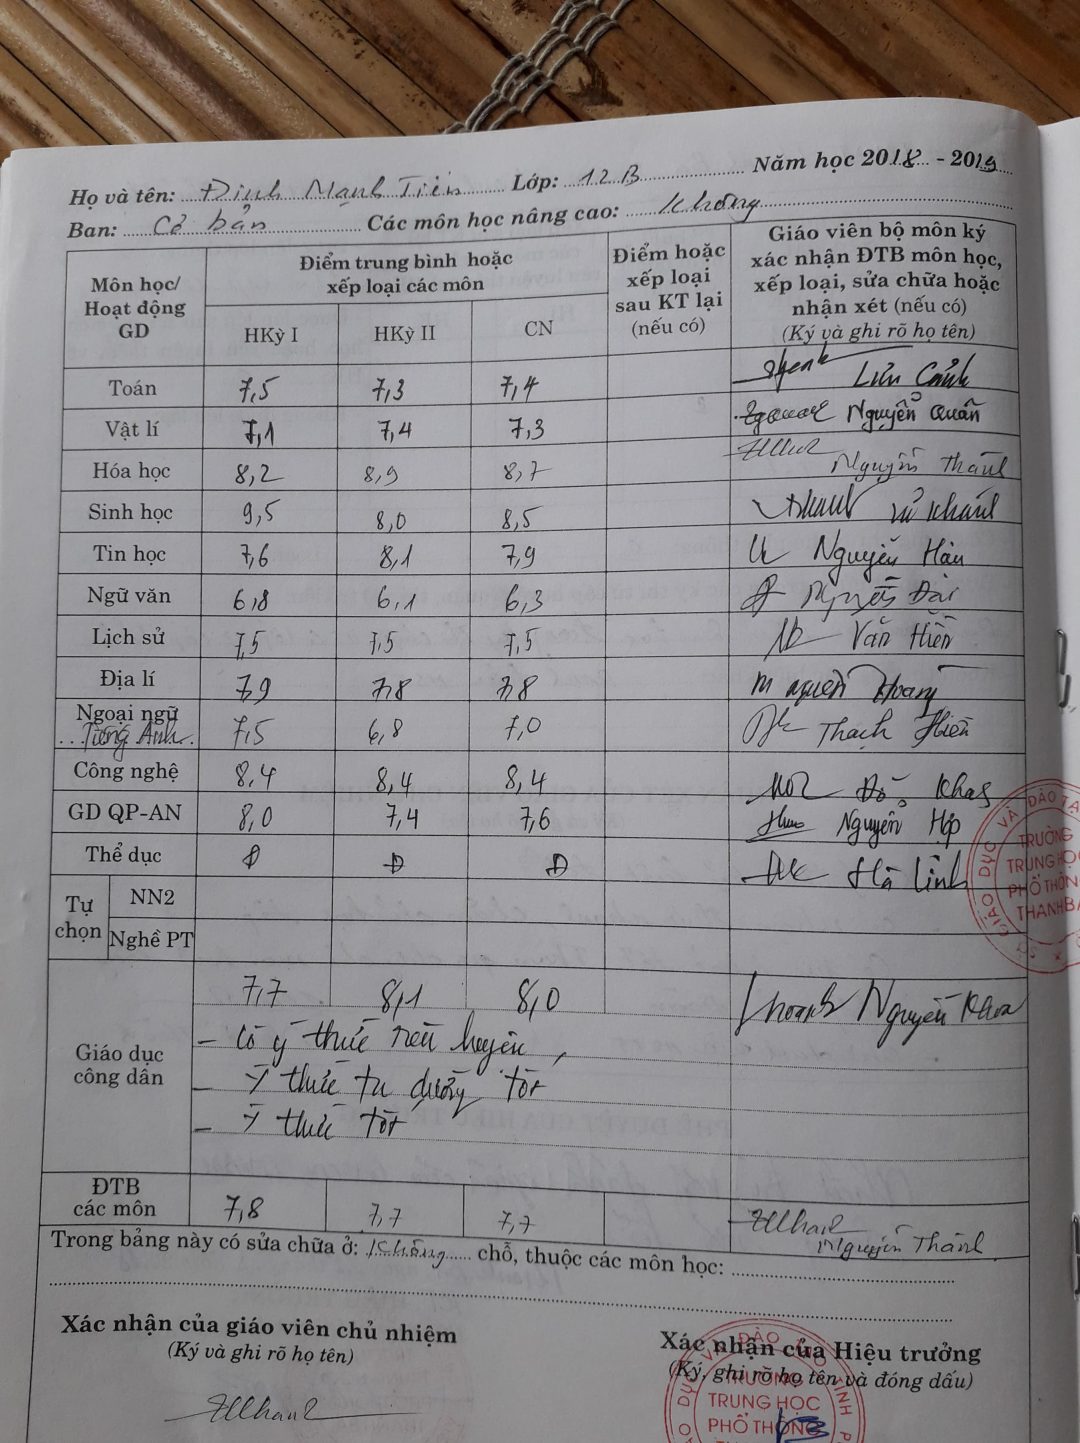 Năm học 2018 - 2019
Họ và tên: Đinh Mạnh Tiến Lớp: 12B
Ban: Cơ bản Các môn học nâng cao: Không
Môn học/ Hoạt động GD
Điểm trung bình hoặc xếp loại các môn
HKỳ I HKỳ II CN
Điểm hoặc xếp loại sau KT lại (nếu có)
Giáo viên bộ môn ký xác nhận ĐTB môn học, xếp loại, sửa chữa hoặc nhận xét (nếu có)
(Ký và ghi rõ họ tên)
Toán 7,5 7,3 7,4
Vật lí 7,1 7,4 7,3 Nguyễn Quân
Hóa học 8,2 8,9 8,7 Nguyễn Thành
Sinh học 9,5 8,0 8,5 Vũ Khánh
Tin học 7,6 8,1 7,9 Nguyễn Hậu
Ngữ văn 6,8 6,1 6,3 Nguyễn
Lịch sử 7,5 7,5 7,5 Văn Hiền
Địa lí 7,9 7,8 7,8 Nguyễn Hoàng
Ngoại ngữ
Tiếng Anh 7,5 6,8 7,0 Thạch Hiền
Công nghệ 8,4 8,4 8,4 Đỗ
GD QP-AN 8,0 7,4 7,6 Nguyễn Hợp
Thể dục Đ Đ Đ Hà Linh
Tự chọn
NN2
Nghề PT
Giáo dục công dân 7,7 8,1 8,0 Nguyễn Khoa
- Có ý thức rèn luyện,
- Ý thức tu dưỡng tốt
- Ý thức tốt
ĐTB các môn 7,8 7,7 7,7 Nguyễn Thành
Trong bảng này có sửa chữa ở: Không chỗ, thuộc các môn học:
Xác nhận của giáo viên chủ nhiệm
(Ký và ghi rõ họ tên)
Xác nhận của Hiệu trưởng
(Ký, ghi rõ họ tên và đóng dấu)
SỞ GIÁO DỤC VÀ ĐÀO TẠ
TRƯỜNG
TRUNG HỌC
PHỔ THÔNG
THANH BA
DỤC VÀ ĐÀO TẠO TỈNH P
TRƯỜNG
TRUNG HỌC
PHỔ THÔNG